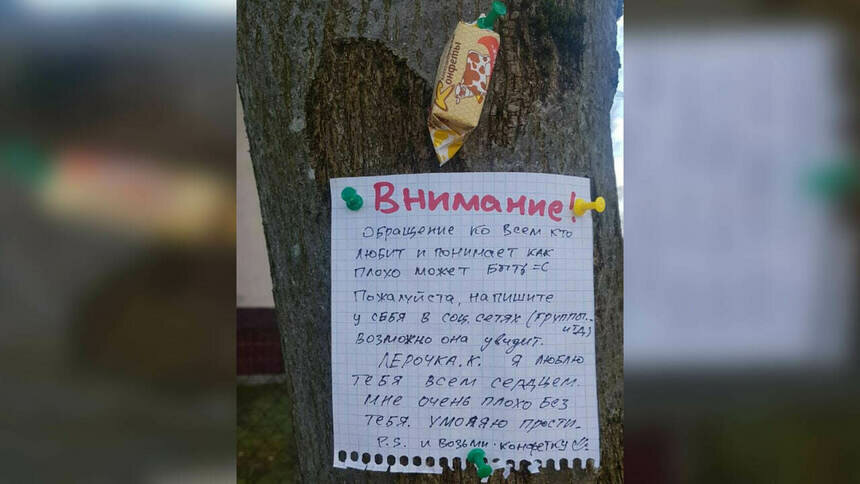 Конфеты
Внимание!
Обращение ко всем кто
любит и понимает как
плохо может быть =С
Пожалуйста, напишите
у себя в соц. сетях (группы..
итд)
возможно она увидит.
Лерочка.К. Я люблю
тебя всем сердцем.
Мне очень плохо без
тебя. Умоляю прости.
P.S. и возьми конфетку